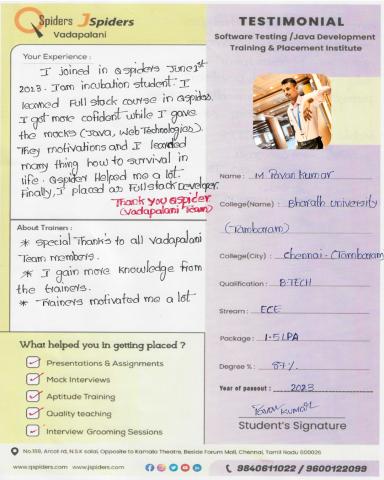 QSpiders JSpiders
Vadapalani
TESTIMONIAL
Software Testing /Java Development
Training & Placement Institute
Your Experience :
I joined in Qspiders June 1st
2023. I am incubation student. I
learned Full stack course in Qspiders.
I got more cofidant while I gave
the mocks (Java, Web Technologies).
They motivations and I learned
many thing how to survival in
life. Qspider Helped me a lot.
Finally, I placed as Full stack Developer.
Thank you Qspider
(Vadapalani Team)
About Trainers :
* special Thanks to all Vadapalani
Team members.
* I gain more knowledge from
the trainers.
* Trainers motivated me a lot
Name : M Pavan kumar
College(Name) : Bharath University
(Tambaram)
College(City) : Chennai - (Tambaram)
Qualification : B.TECH
Stream : ECE
Package : 1.5 LPA
Degree % : 87%
Year of passout : 2023
Pavan Kumar
Student's Signature
What helped you in getting placed ?
Presentations & Assignments
Mock Interviews
Aptitude Training
Quality teaching
Interview Grooming Sessions
No.159, Arcot rd, N.S.K salai, Opposite to Kamala Theatre, Beside Forum Mall, Chennai, Tamil Nadu 600026
www.qspiders.com www.jspiders.com
9840611022 / 9600122099